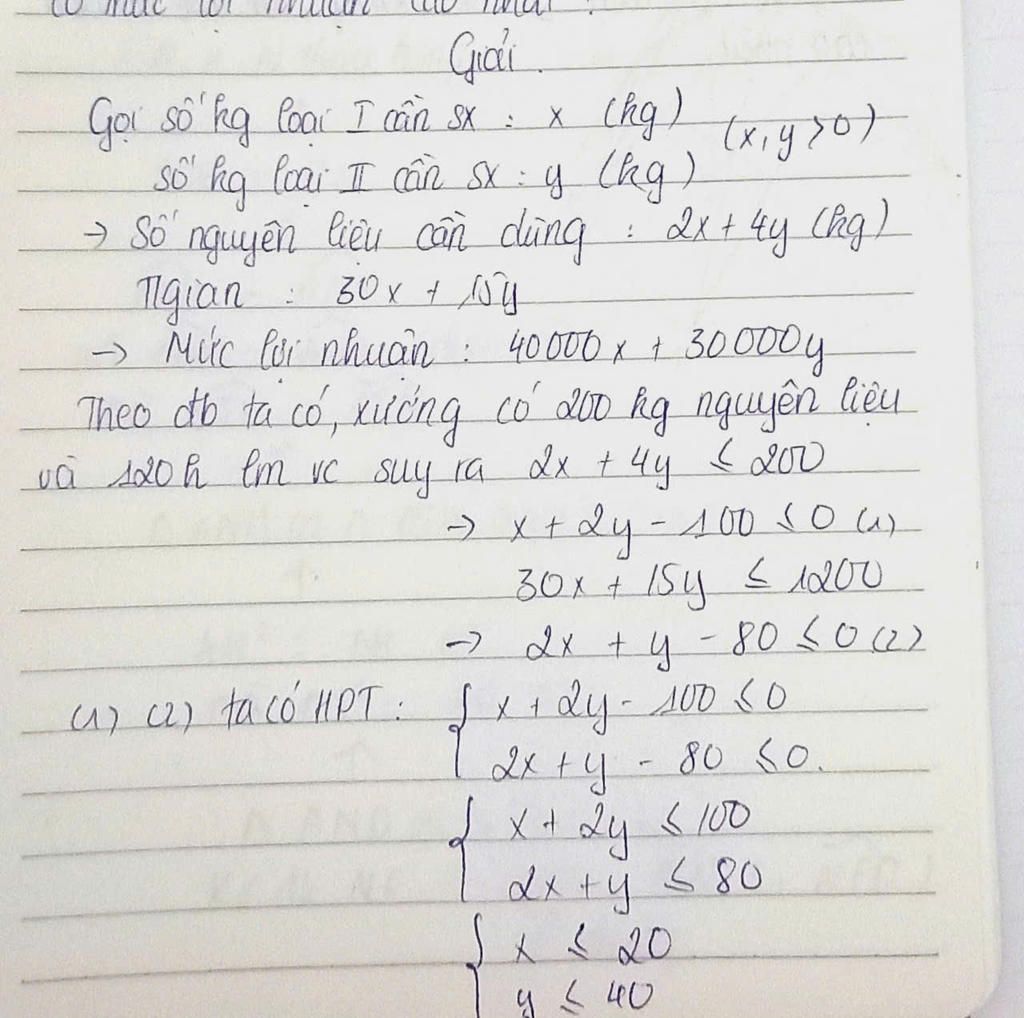 có mức lợi nhuận cao nhất.
Giải.
Gọi số kg loại I cần sx : x (kg) (x, y > 0)
số kg loại II cần sx : y (kg)
→ Số nguyên liệu cần dùng : 2x + 4y (kg)
Tgian : 30x + 15y
→ Mức lợi nhuận : 40000x + 30000y
Theo đb ta có, xưởng có 200 kg nguyên liệu
và 120h lm vc suy ra 2x + 4y ≤ 200
→ x + 2y - 100 ≤ 0 (1)
30x + 15y ≤ 1200
→ 2x + y - 80 ≤ 0 (2)
(1) (2) ta có HPT : { x + 2y - 100 ≤ 0
2x + y - 80 ≤ 0.
{ x + 2y ≤ 100
2x + y ≤ 80
{ x ≤ 20
y ≤ 40